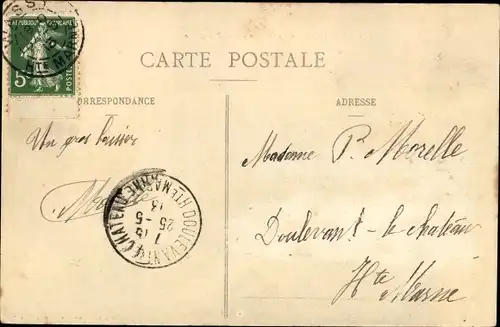 REPUBLIQUE FRANÇAISE
5
POSTES
HTE MARNE
CARTE POSTALE
CORRESPONDANCE
ADRESSE
Un gros baiser
Madame P. Morelle
Doulevant-le-château
Hte Marne
DOULEVANT-LE-CHATEAU
HTE MARNE
7 15
25 - 5
13